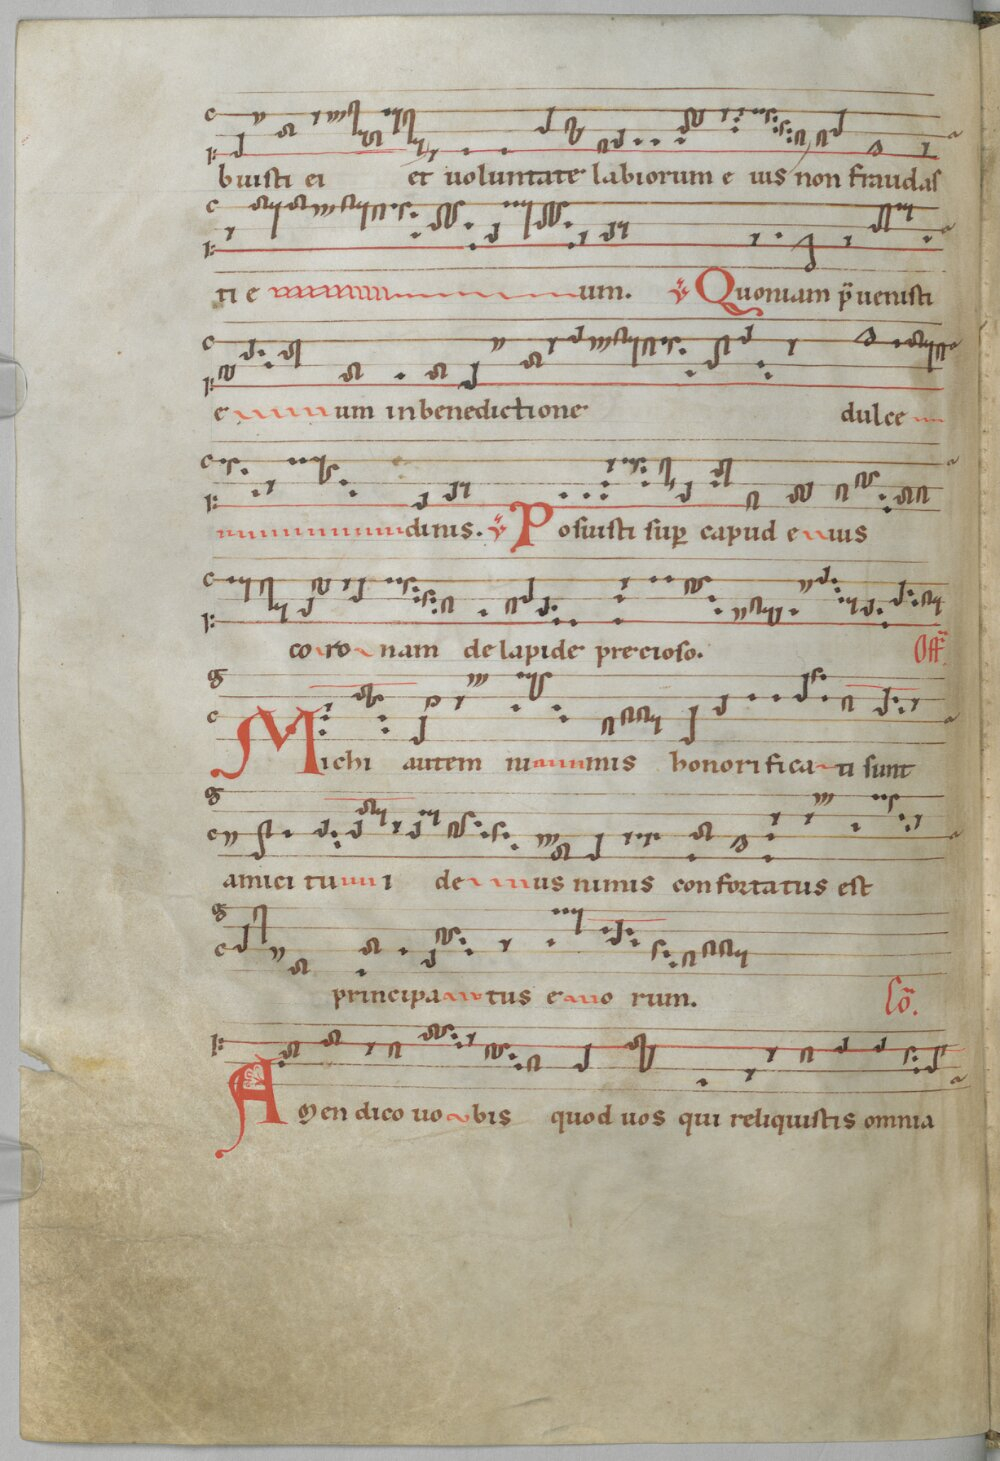 buisti ei et uoluntate labiorum e ius non fraudas
ti e um. ℣ Quoniam p̄uenisti
e um in benedictione dulce
dinis. ℣ Posuisti sup capud e ius
co ro nam de lapide precioso. Off̄
Michi autem ni mis honorifica ti sunt
amici tu i de us nimis confortatus est
principa tus e o rum. Cō.
Amen dico uo bis quod uos qui reliquistis omnia